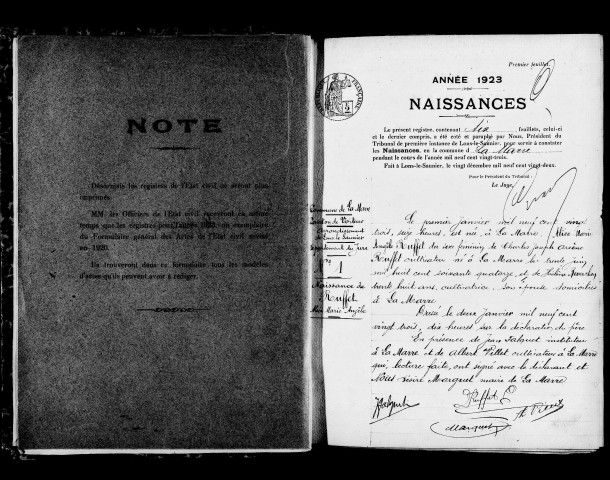 NOTE
Désormais les registres de l'Etat civil ne seront plus
imprimés.
MM. les Officiers de l'Etat civil recevront en même
temps que les registres pour l'année 1923, un exemplaire
du Formulaire général des Actes de l'Etat civil
1920.
Ils trouveront dans ce formulaire tous les modèles
d'actes qu'ils peuvent avoir à rédiger.
Premier feuillet.
ANNÉE 1923
NAISSANCES
Le présent registre, contenant feuillets, celui-ci
et le dernier compris, a été coté et paraphé par Nous, Président du
Tribunal de première instance de Lons-le-Saunier, pour servir à constater
les Naissances, en la commune de La Marre
pendant le cours de l'année mil neuf cent vingt-trois.
Fait à Lons-le-Saunier, le vingt décembre mil neuf cent vingt-deux.
Pour le Président du Tribunal :
Le Juge,
Commune de La Marre
Canton de Voiteur
arrondissement
de Lons le Saunier
Département du Jura
N° 1
Naissance de
Ruffet
Alice Marie Angèle
Le premier janvier mil neuf cent vingt
trois, seize heures, est née à La Marre, Alice Marie
Angèle Ruffet du sexe féminin de Charles Joseph Arsène
Ruffet cultivateur né à La Marre le trente juin
mil huit cent soixante quatorze, et de
trente huit ans, cultivatrice, son épouse domiciliés
à La Marre
Dressé le deux janvier mil neuf cent
vingt trois, dix heures sur la déclaration du père
En présence de Jean instituteur
à La Marre et de Albert Pillet cultivateur à La Marre
qui, lecture faite, ont signé avec le déclarant et
Nous Désiré Marguet maire de La Marre
Ruffet
Marguet